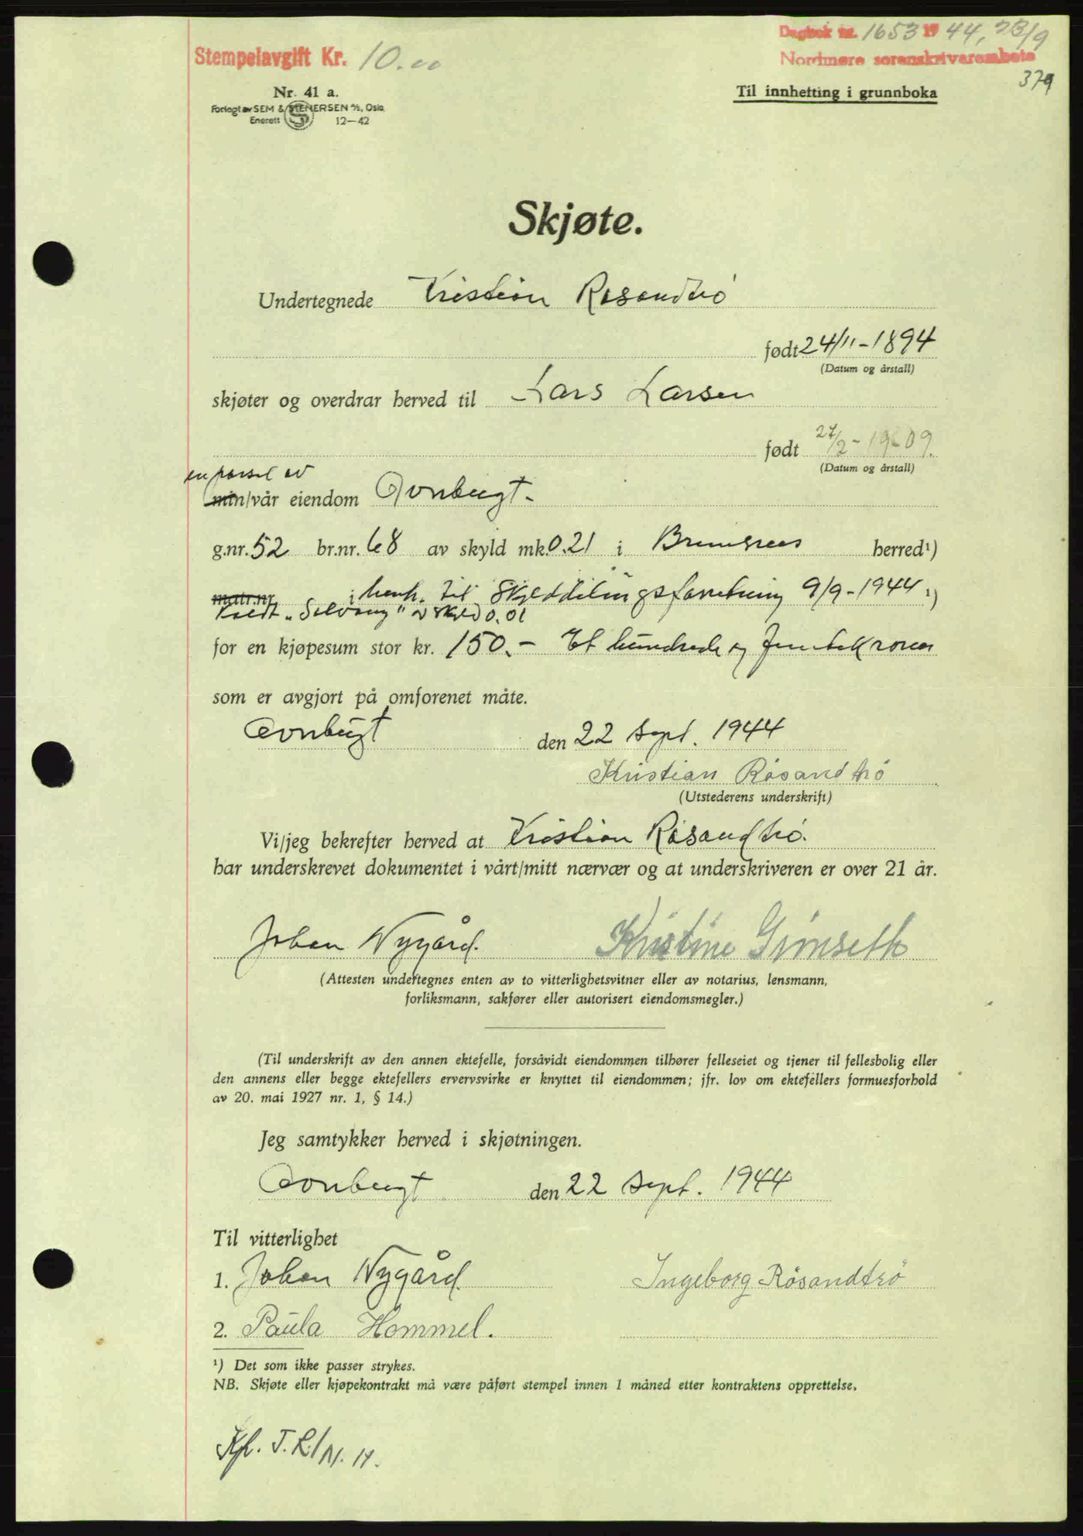 Stempelavgift Kr. 10.00
Dagbok nr. 1653 1944, 23/9
Nordmøre sorenskriverembete
379
Nr. 41 a.
Forlagt av SEM & STENERSEN A/S, Oslo
Enerett 12—42
Til innhetting i grunnboka
Skjøte.
Undertegnede Kristian Røsandtrø
født 24/11-1894
(Datum og årstall)
skjøter og overdrar herved til Lars Larsen
født 27/2-1909.
(Datum og årstall)
en parsel av
min/vår eiendom Avnbugt.
g.nr. 52 br.nr. 68 av skyld mk. 0.21 i Bremsnes herred¹)
matr.nr. i henh. til Skylddelingsforretning 9/9-1944 ¹)
kaldt „Solvang" av skyld 0.01
for en kjøpesum stor kr. 150.- Et hundrede og femti kroner
som er avgjort på omforenet måte.
Avnbugt den 22 sept. 1944
Kristian Røsandtrø
(Utstederens underskrift)
Vi/jeg bekrefter herved at Kristian Røsandtrø.
har underskrevet dokumentet i vårt/mitt nærvær og at underskriveren er over 21 år.
Johan Nygård. Kristine Grimseth
(Attesten undertegnes enten av to vitterlighetsvitner eller av notarius, lensmann,
forliksmann, sakfører eller autorisert eiendomsmegler.)
(Til underskrift av den annen ektefelle, forsåvidt eiendommen tilhører felleseiet og tjener til fellesbolig eller
den annens eller begge ektefellers ervervsvirke er knyttet til eiendommen; jfr. lov om ektefellers formuesforhold
av 20. mai 1927 nr. 1, § 14.)
Jeg samtykker herved i skjøtningen.
Avnbugt den 22 sept. 1944
Til vitterlighet
1. Johan Nygård. Ingeborg Røsandtrø
2. Paula Hommel.
¹) Det som ikke passer strykes.
NB. Skjøte eller kjøpekontrakt må være påført stempel innen 1 måned etter kontraktens opprettelse.